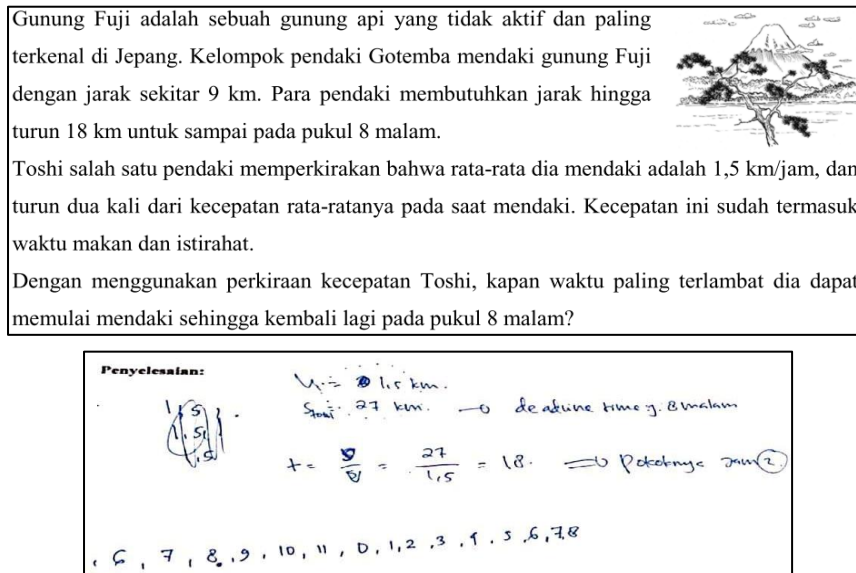 Gunung Fuji adalah sebuah gunung api yang tidak aktif dan paling
terkenal di Jepang. Kelompok pendaki Gotemba mendaki gunung Fuji
dengan jarak sekitar 9 km. Para pendaki membutuhkan jarak hingga
turun 18 km untuk sampai pada pukul 8 malam.
Toshi salah satu pendaki memperkirakan bahwa rata-rata dia mendaki adalah 1,5 km/jam, dan
turun dua kali dari kecepatan rata-ratanya pada saat mendaki. Kecepatan ini sudah termasuk
waktu makan dan istirahat.
Dengan menggunakan perkiraan kecepatan Toshi, kapan waktu paling terlambat dia dapat
memulai mendaki sehingga kembali lagi pada pukul 8 malam?
Penyelesaian:
= 1,5 km.
27 km. deadline time 8 malam
t = = 27/1,5 = 18. Pokoknya Jam 2
6, 7, 8, 9, 10, 11, 0, 1, 2, 3, 4, 5, 6, 7, 8